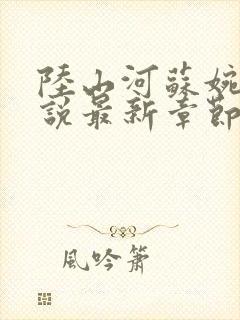 陸山河蘇婉
說最新章節
風吟簫